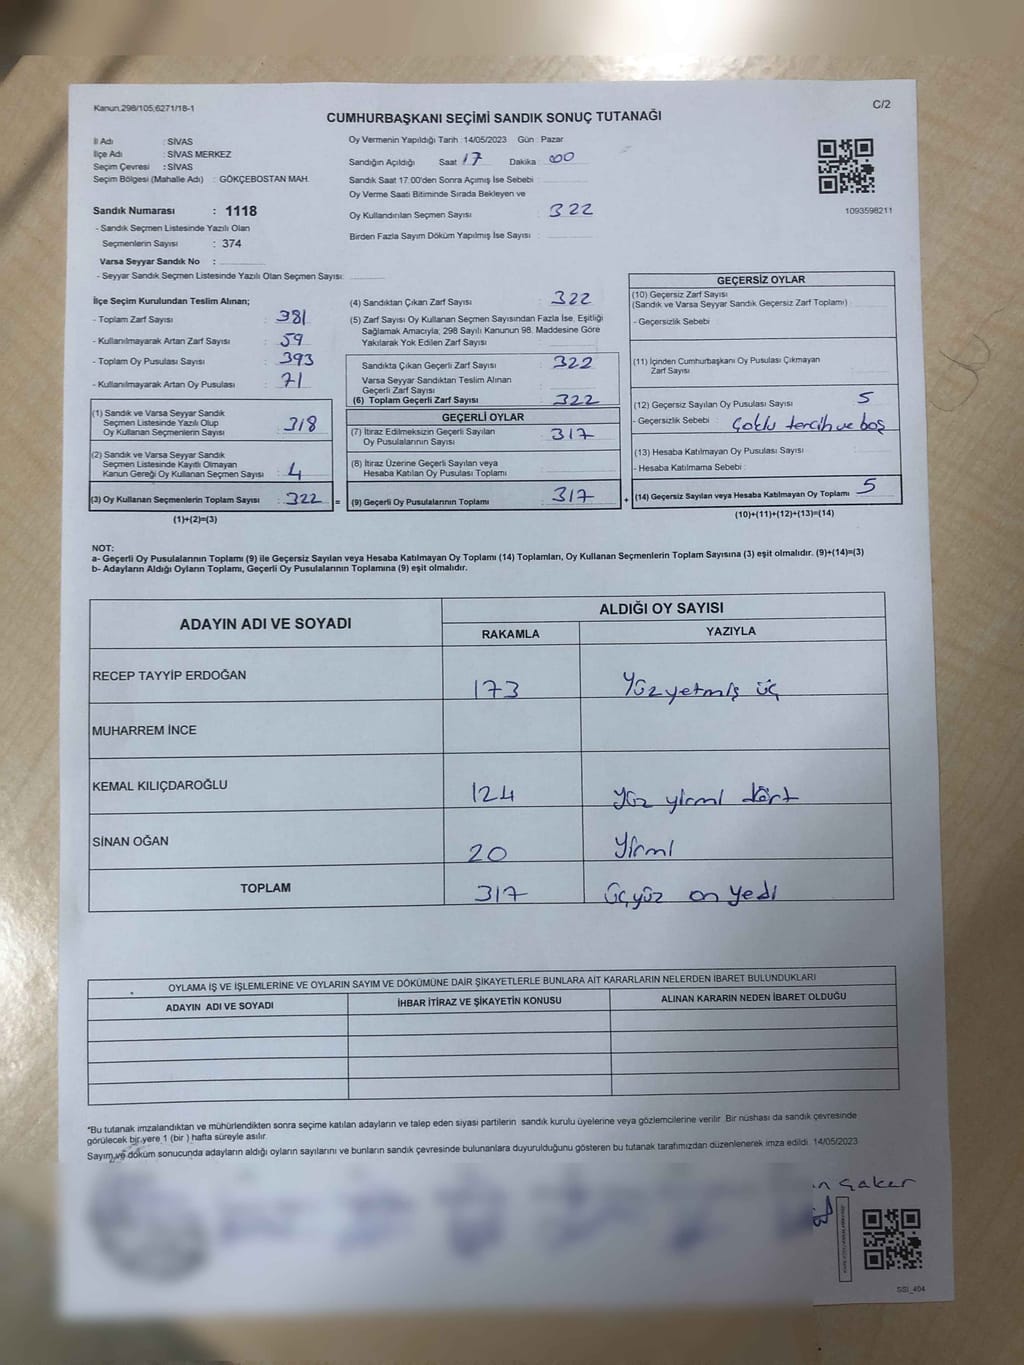 Kanun.298/105,6271/18-1
C/2
CUMHURBAŞKANI SEÇİMİ SANDIK SONUÇ TUTANAĞI
İl Adı : SİVAS
İlçe Adı : SİVAS MERKEZ
Seçim Çevresi : SİVAS
Seçim Bölgesi (Mahalle Adı) : GÖKÇEBOSTAN MAH.
Sandık Numarası : 1118
- Sandık Seçmen Listesinde Yazılı Olan
Seçmenlerin Sayısı : 374
Varsa Seyyar Sandık No :
- Seyyar Sandık Seçmen Listesinde Yazılı Olan Seçmen Sayısı:
Oy Vermenin Yapıldığı Tarih : 14/05/2023 Gün : Pazar
Sandığın Açıldığı Saat 17 Dakika 00
Sandık Saat 17:00'den Sonra Açımış İse Sebebi :
Oy Verme Saati Bitiminde Sırada Bekleyen ve
Oy Kullandırılan Seçmen Sayısı : 322
Birden Fazla Sayım Döküm Yapılmış İse Sayısı :
1093598211
İlçe Seçim Kurulundan Teslim Alınan;
- Toplam Zarf Sayısı : 381
- Kullanılmayarak Artan Zarf Sayısı : 59
- Toplam Oy Pusulası Sayısı : 393
- Kullanılmayarak Artan Oy Pusulası : 71
(1) Sandık ve Varsa Seyyar Sandık
Seçmen Listesinde Yazılı Olup
Oy Kullanan Seçmenlerin Sayısı : 318
(2) Sandık ve Varsa Seyyar Sandık
Seçmen Listesinde Kayıtlı Olmayan
Kanun Gereği Oy Kullanan Seçmen Sayısı : 4
(3) Oy Kullanan Seçmenlerin Toplam Sayısı : 322 =
(1)+(2)=(3)
(4) Sandıktan Çıkan Zarf Sayısı : 322
(5) Zarf Sayısı Oy Kullanan Seçmen Sayısından Fazla İse, Eşitliği
Sağlamak Amacıyla; 298 Sayılı Kanunun 98. Maddesine Göre
Yakılarak Yok Edilen Zarf Sayısı :
Sandıkta Çıkan Geçerli Zarf Sayısı : 322
Varsa Seyyar Sandıktan Teslim Alınan
Geçerli Zarf Sayısı :
(6) Toplam Geçerli Zarf Sayısı : 322
GEÇERLİ OYLAR
(7) İtiraz Edilmeksizin Geçerli Sayılan
Oy Pusulalarının Sayısı : 317
(8) İtiraz Üzerine Geçerli Sayılan veya
Hesaba Katılan Oy Pusulası Toplamı :
(9) Geçerli Oy Pusulalarının Toplamı : 317 +
GEÇERSİZ OYLAR
(10) Geçersiz Zarf Sayısı
(Sandık ve Varsa Seyyar Sandık Geçersiz Zarf Toplamı) :
- Geçersizlik Sebebi :
(11) İçinden Cumhurbaşkanı Oy Pusulası Çıkmayan
Zarf Sayısı :
(12) Geçersiz Sayılan Oy Pusulası Sayısı : 5
- Geçersizlik Sebebi : Çoklu tercih ve boş
(13) Hesaba Katılmayan Oy Pusulası Sayısı :
- Hesaba Katılmama Sebebi :
(14) Geçersiz Sayılan veya Hesaba Katılmayan Oy Toplamı : 5
(10)+(11)+(12)+(13)=(14)
NOT:
a- Geçerli Oy Pusulalarının Toplamı (9) ile Geçersiz Sayılan veya Hesaba Katılmayan Oy Toplamı (14) Toplamları, Oy Kullanan Seçmenlerin Toplam Sayısına (3) eşit olmalıdır. (9)+(14)=(3)
b- Adayların Aldığı Oyların Toplamı, Geçerli Oy Pusulalarının Toplamına (9) eşit olmalıdır.
ADAYIN ADI VE SOYADI
ALDIĞI OY SAYISI
RAKAMLA YAZIYLA
RECEP TAYYİP ERDOĞAN 173 Yüzyetmiş üç
MUHARREM İNCE
KEMAL KILIÇDAROĞLU 124 Yüz yirmi dört
SİNAN OĞAN 20 Yirmi
TOPLAM 317 Üçyüz on yedi
OYLAMA İŞ VE İŞLEMLERİNE VE OYLARIN SAYIM VE DÖKÜMÜNE DAİR ŞİKAYETLERLE BUNLARA AİT KARARLARIN NELERDEN İBARET BULUNDUKLARI
ADAYIN ADI VE SOYADI İHBAR İTİRAZ VE ŞİKAYETİN KONUSU ALINAN KARARIN NEDEN İBARET OLDUĞU
*Bu tutanak imzalandıktan ve mühürlendikten sonra seçime katılan adayların ve talep eden siyasi partilerin sandık kurulu üyelerine veya gözlemcilerine verilir. Bir nüshası da sandık çevresinde
görülecek bir yere 1 (bir) hafta süreyle asılır.
Sayım ve döküm sonucunda adayların aldığı oyların sayılarını ve bunların sandık çevresinde bulunanlara duyurulduğunu gösteren bu tutanak tarafımızdan düzenlenerek imza edildi. 14/05/2023
SSI_404